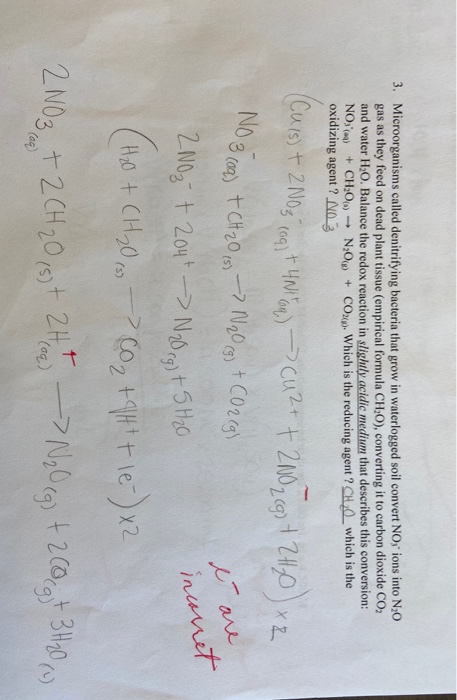 3. Microorganisms called denitrifying bacteria that grow in waterlogged soil convert NO₃⁻ ions into N₂O
gas as they feed on dead plant tissue (empirical formula CH₂O), converting it to carbon dioxide CO₂
and water H₂O. Balance the redox reaction in slightly acidic medium that describes this conversion:
NO₃⁻(aq) + CH₂O(s) → N₂O(g) + CO₂(g). Which is the reducing agent ? CH₂O which is the
oxidizing agent ? NO₃⁻
(Cu(s) + 2NO₃⁻(aq) + 4H⁺(aq) → Cu2+ + 2NO₂(g) + 2H₂O) x 2
NO₃⁻(aq) + CH₂O(s) → N₂O(g) + CO₂(g)
2NO₃⁻ + 20H⁺ → N₂O(g) + 5H₂O
(H₂O + CH₂O(s) → CO₂ + 9H⁺ + 1e⁻) x 2
e⁻ are
incorrect
2NO₃(aq) + 2CH₂O(s) + 2H⁺(aq) → N₂O(g) + 2CO(g) + 3H₂O(l)